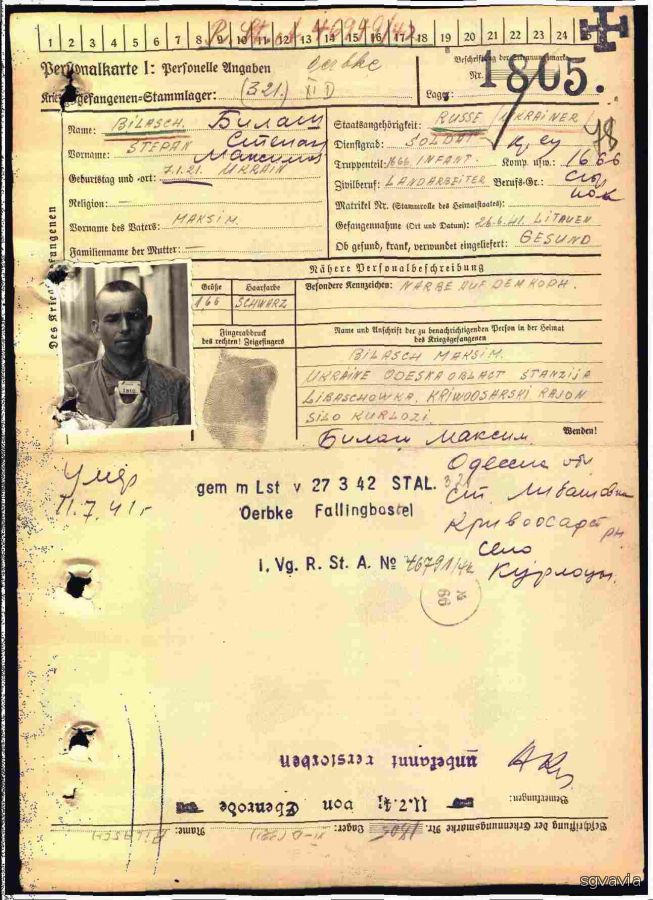 P. St. A 40990/43
1 2 3 4 5 6 7 8 9 10 11 12 13 14 15 16 17 18 19 20 21 22 23 24 25
Personalkarte I: Personelle Angaben
Oerbke
Beschriftung der Erkennungsmarke
Nr. 1805.
Kriegsgefangenen-Stammlager: (321) XI D
Lager:
Des Kriegsgefangenen
Name: BILASCH. Билаш
Vorname: STEPAN Степан
Максимов
Geburtstag und -ort: 7.1.21. UKRAIN
Religion: —
Vorname des Vaters: MAKSIM.
Familienname der Mutter: —
Staatsangehörigkeit: RUSSE UKRAINER!
Dienstgrad: SOLDAT
Truppenteil: 1666 INFANT. Komp. usw.: 1666
Zivilberuf: LANDARBEITER Berufs-Gr.:
Matrikel Nr. (Stammrolle des Heimatstaates):
Gefangennahme (Ort und Datum): 26.6.41. LITAUEN
Ob gesund, krank, verwundet eingeliefert: GESUND
Nähere Personalbeschreibung
Größe Haarfarbe
1,66 SCHWARZ
Besondere Kennzeichen: NARBE AUF DEM KOPH.
Fingerabdruck
des rechten! Zeigefingers
Name und Anschrift der zu benachrichtigenden Person in der Heimat
des Kriegsgefangenen
BILASCH MAKSIM.
UKRAINE ODESKA OBLAST STANZIJA
LIBASCHOWKA. KRIWOOSARSKI RAJON
SILO KURLOZI.
Билаш Максим.
Wenden!
Умер
11.7.41 г
gem m Lst v 27 3 42 STAL. 321
Oerbke Fallingbostel
I. Vg. R. St. A. № 46791/42
Одесса обл
ст. Любашовка
Кривоозар рн
село
Курлоцы.
66
unbekannt verstorben
11.7.41 von Ebenrode
Bemerkungen:
Beschriftung der Erkennungsmarke Nr. 1805 Lager: XI-D (321) Name: (BILASCH)
sgvavia